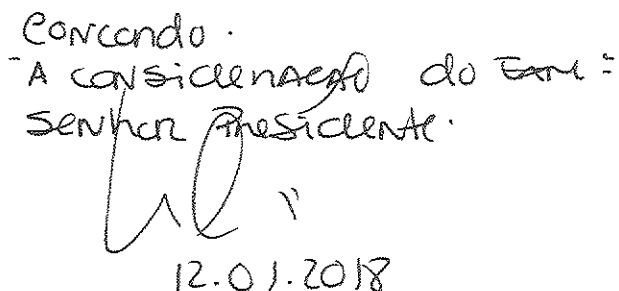 Concordo.
À consideração do Exmº
Senhor Presidente.
12.01.2018